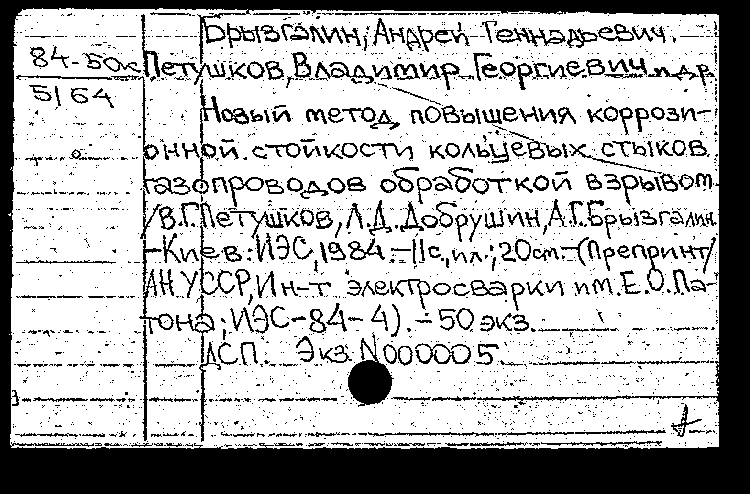 Брызгалин, Андрей Геннадьевич.
84-50к Петушков, Владимир Георгиевич и др
5164
Новый метод повышения коррози-
онной стойкости кольцевых стыков
газопроводов обработкой взрывом
/В.Г.Петушков, Л.Д.Добрушин, А.Г.Брызгалин.
-Киев: ИЭС, 1984.-11с., ил.; 20см.-(Препринт/
АН УССР, Ин-т электросварки им. Е.О.Па-
тона; ИЭС-84-4).-50 экз.
ДСП. Экз N000005.